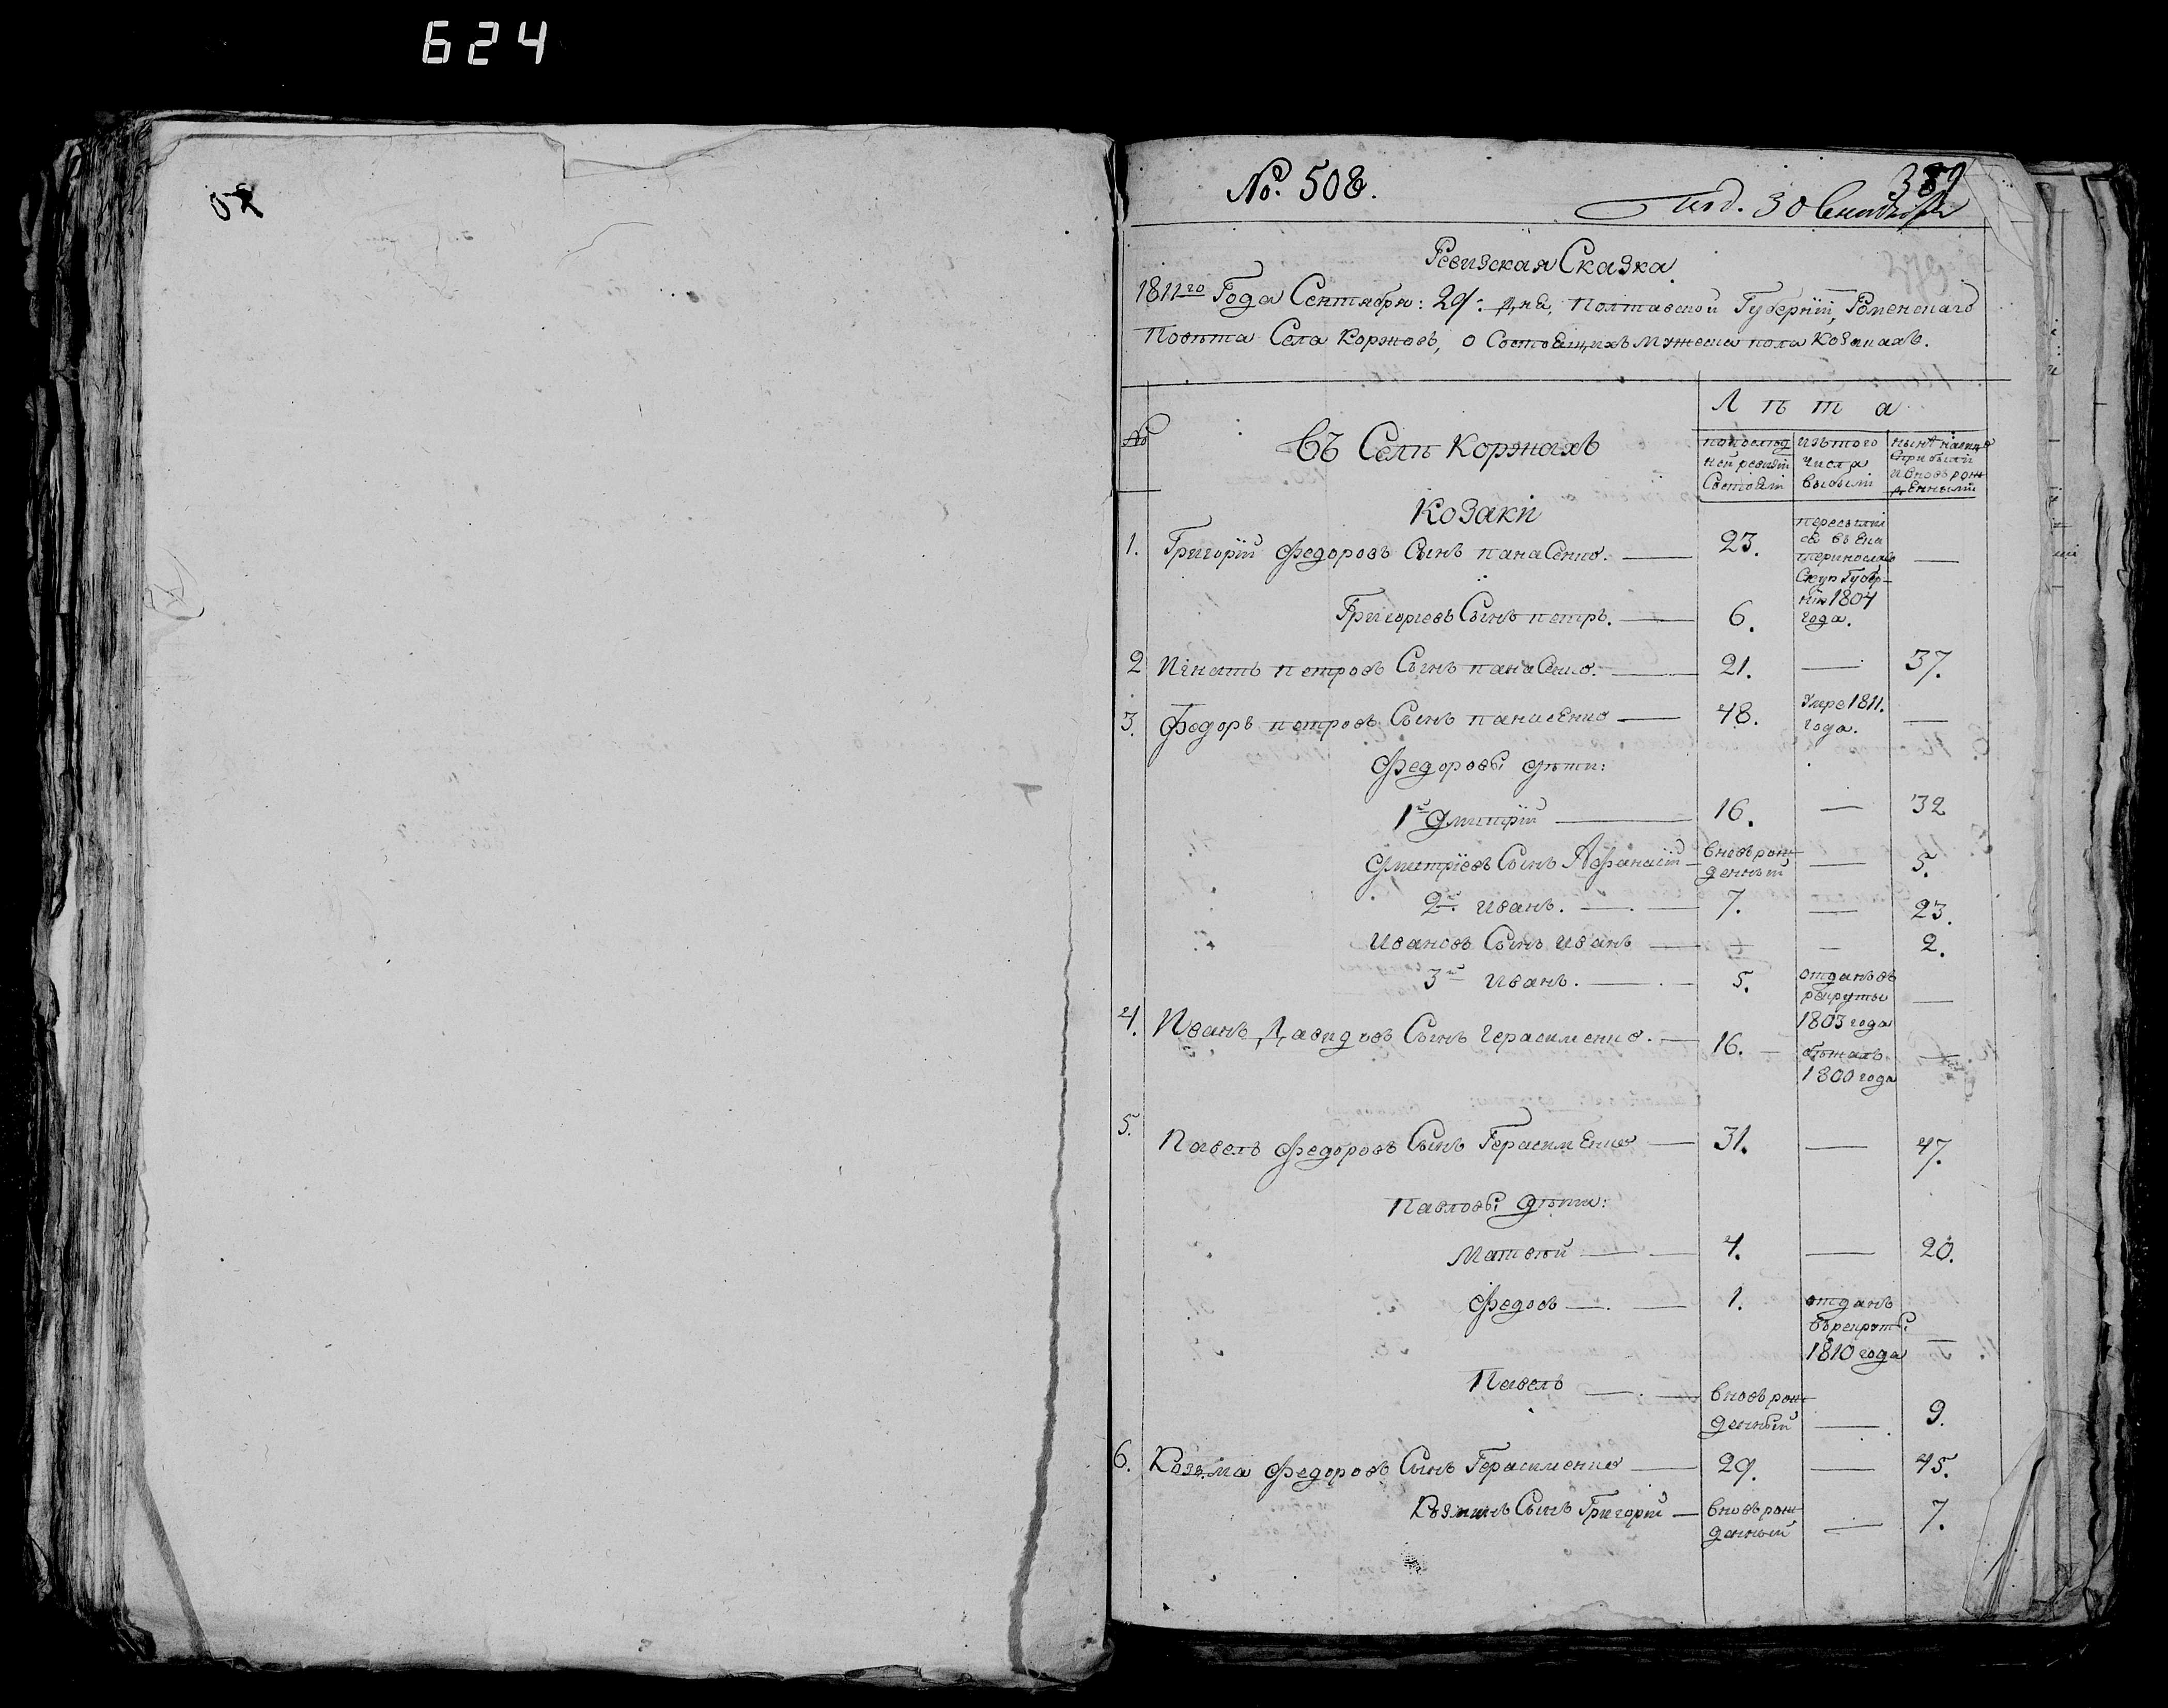 624
№. 508.
389
Под. 30 Сентября
Ревизская Сказка
1811го Года Сентября: 29: дня, Полтавской Губернїи, Роменскаго
Повѣта Села Коржовъ, о Состоящихъ мужеска пола Козакахъ.
№
Въ Селѣ Коржахъ
Л ѣ т а
попослѣд
ней ревизїи
Состояли
изътого
числа
выбыли
нынѣ налицо
сприбыли
ивновь рож
денными
Козаки
1. Григорїй федоровъ Сынъ панаСенко. — 23. переселил
ся въ Ека
теринослав
Скую Губер-
нїю 1804
года. —
Григорїевъ Сынъ петръ. — 6.
2 Игнатъ петровъ Сынъ панаСенко. — 21. — 37.
3. федоръ петровъ Сынъ панасенко — 48. умре 1811.
года. —
федоровы дѣти:
1й Дмитрїй — 16. — 32
Дмитрїевъ Сынъ Афанасїй — вновь рож
денный — 5.
2й иванъ. — 7. — 23.
ивановъ Сынъ иванъ — — — 2.
3й иванъ. — 5. отданъ въ
рекруты
1803 года —
4. Иванъ Давидовъ Сынъ Герасименко. — 16. — бѣжалъ
1800 года —
5. Павелъ федоровъ Сынъ Герасименко — 31. — 47.
Павловы дѣти:
Матвѣй — 4. — 20.
федоръ — 1. отданъ
върекруты
1810 года —
Павелъ — вновь рож
денный — 9.
6. Козьма федоровъ Сынъ Герасименко — 29. — 45.
Козминъ Сынъ Григорїй — вновь рож
денный — 7.